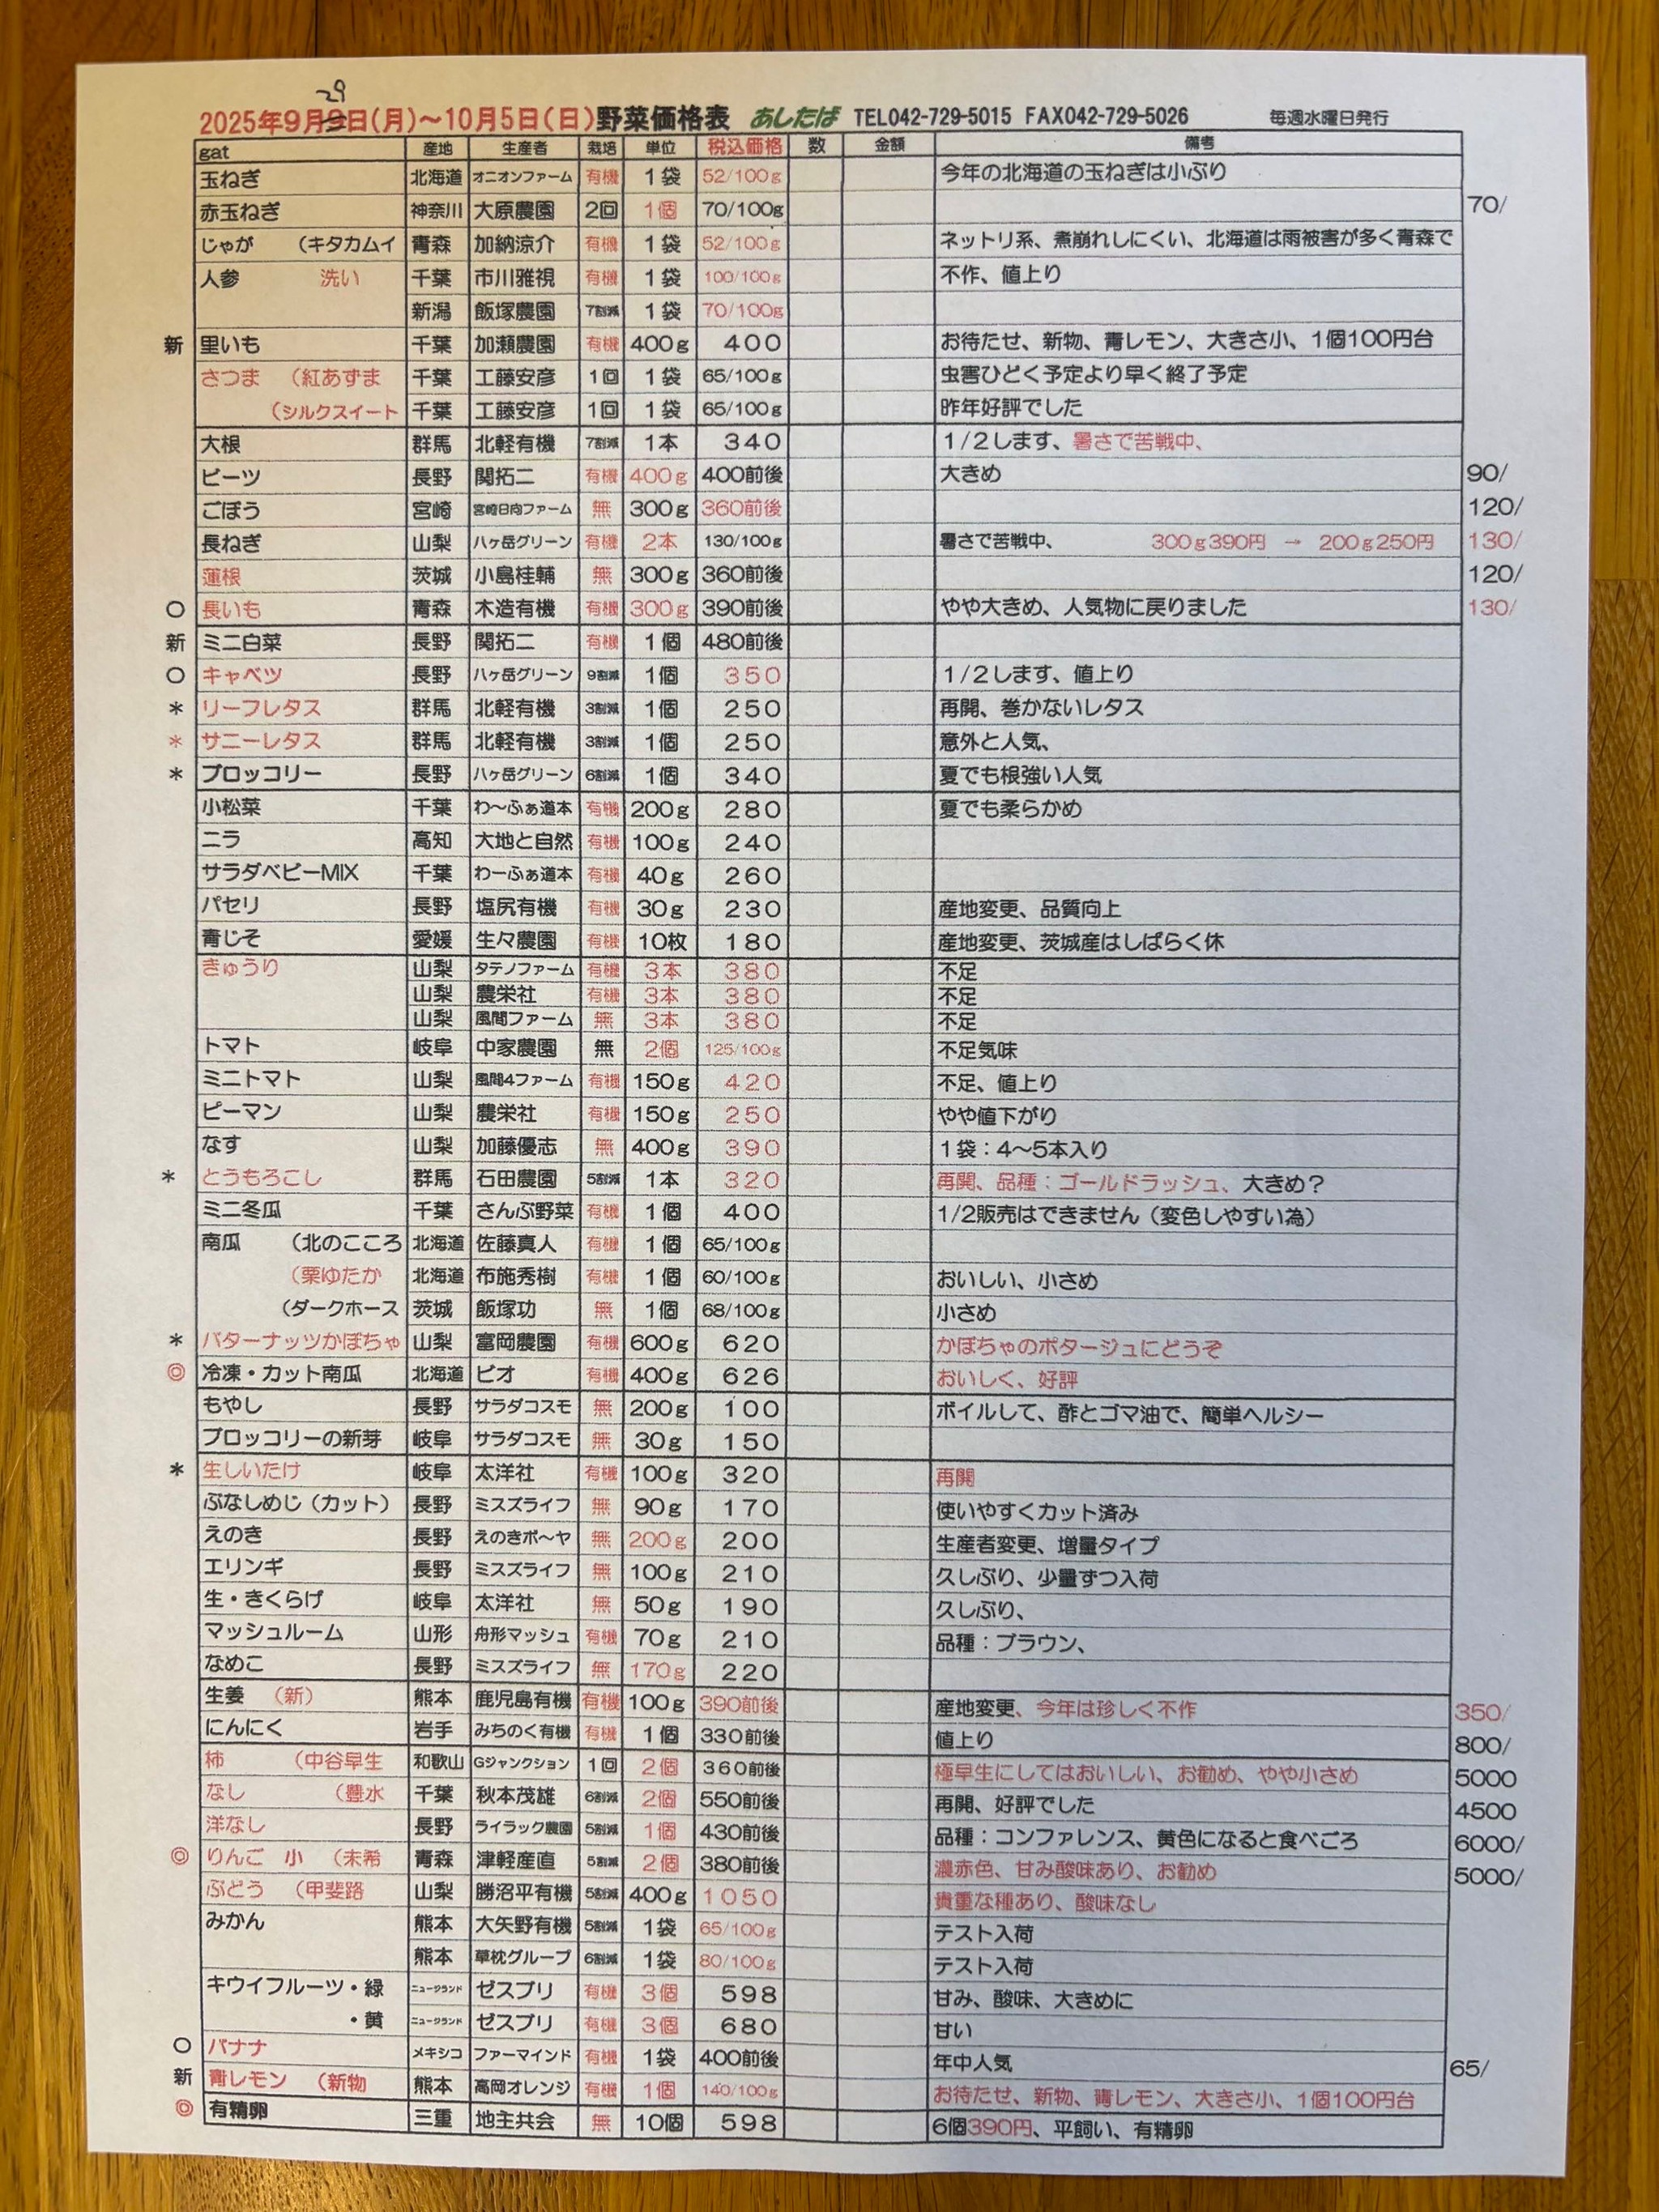 29
2025年9月9日(月)～10月5日(日)野菜価格表 あしたば TEL042-729-5015 FAX042-729-5026 毎週水曜日発行
gat 産地 生産者 栽培 単位 税込価格 数 金額 備考
玉ねぎ 北海道 オニオンファーム 有機 1袋 52/100g 今年の北海道の玉ねぎは小ぶり
赤玉ねぎ 神奈川 大原農園 2回 1個 70/100g 70/
じゃが (キタカムイ 青森 加納涼介 有機 1袋 52/100g ネットリ系、煮崩れしにくい、北海道は雨被害が多く青森で
人参 洗い 千葉 市川雅視 有機 1袋 100/100g 不作、値上り
新潟 飯塚農園 7割減 1袋 70/100g
新 里いも 千葉 加瀬農園 有機 400g 400 お待たせ、新物、青レモン、大きさ小、1個100円台
さつま (紅あずま 千葉 工藤安彦 1回 1袋 65/100g 虫害ひどく予定より早く終了予定
(シルクスイート 千葉 工藤安彦 1回 1袋 65/100g 昨年好評でした
大根 群馬 北軽有機 7割減 1本 340 1/2します、暑さで苦戦中、
ビーツ 長野 関拓二 有機 400g 400前後 大きめ 90/
ごぼう 宮崎 宮崎日向ファーム 無 300g 360前後 120/
長ねぎ 山梨 八ヶ岳グリーン 有機 2本 130/100g 暑さで苦戦中、 300g390円 → 200g250円 130/
蓮根 茨城 小島桂輔 無 300g 360前後 120/
○ 長いも 青森 木造有機 有機 300g 390前後 やや大きめ、人気物に戻りました 130/
新 ミニ白菜 長野 関拓二 有機 1個 480前後
○ キャベツ 長野 八ヶ岳グリーン 9割減 1個 350 1/2します、値上り
* リーフレタス 群馬 北軽有機 3割減 1個 250 再開、巻かないレタス
* サニーレタス 群馬 北軽有機 3割減 1個 250 意外と人気、
* ブロッコリー 長野 八ヶ岳グリーン 6割減 1個 340 夏でも根強い人気
小松菜 千葉 わ～ふぁ道本 有機 200g 280 夏でも柔らかめ
ニラ 高知 大地と自然 有機 100g 240
サラダベビーMIX 千葉 わーふぁ道本 有機 40g 260
パセリ 長野 塩尻有機 有機 30g 230 産地変更、品質向上
青じそ 愛媛 生々農園 有機 10枚 180 産地変更、茨城産はしばらく休
きゅうり 山梨 タテノファーム 有機 3本 380 不足
山梨 農栄社 有機 3本 380 不足
山梨 風間ファーム 無 3本 380 不足
トマト 岐阜 中家農園 無 2個 125/100g 不足気味
ミニトマト 山梨 風間4ファーム 有機 150g 420 不足、値上り
ピーマン 山梨 農栄社 有機 150g 250 やや値下がり
なす 山梨 加藤優志 無 400g 390 1袋：4～5本入り
* とうもろこし 群馬 石田農園 5割減 1本 320 再開、品種：ゴールドラッシュ、大きめ？
ミニ冬瓜 千葉 さんぶ野菜 有機 1個 400 1/2販売はできません（変色しやすい為）
南瓜 (北のこころ 北海道 佐藤真人 有機 1個 65/100g
(栗ゆたか 北海道 布施秀樹 有機 1個 60/100g おいしい、小さめ
(ダークホース 茨城 飯塚功 無 1個 68/100g 小さめ
* バターナッツかぼちゃ 山梨 富岡農園 有機 600g 620 かぼちゃのポタージュにどうぞ
◎ 冷凍・カット南瓜 北海道 ビオ 有機 400g 626 おいしく、好評
もやし 長野 サラダコスモ 無 200g 100 ボイルして、酢とゴマ油で、簡単ヘルシー
ブロッコリーの新芽 岐阜 サラダコスモ 無 30g 150
* 生しいたけ 岐阜 太洋社 有機 100g 320 再開
ぶなしめじ（カット） 長野 ミスズライフ 無 90g 170 使いやすくカット済み
えのき 長野 えのきボ～ヤ 無 200g 200 生産者変更、増量タイプ
エリンギ 長野 ミスズライフ 無 100g 210 久しぶり、少量ずつ入荷
生・きくらげ 岐阜 太洋社 無 50g 190 久しぶり、
マッシュルーム 山形 舟形マッシュ 有機 70g 210 品種：ブラウン、
なめこ 長野 ミスズライフ 無 170g 220
生姜 （新） 熊本 鹿児島有機 有機 100g 390前後 産地変更、今年は珍しく不作 350/
にんにく 岩手 みちのく有機 有機 1個 330前後 値上り 800/
柿 (中谷早生 和歌山 Gジャンクション 1回 2個 360前後 極早生にしてはおいしい、お勧め、やや小さめ 5000
なし (豊水 千葉 秋本茂雄 6割減 2個 550前後 再開、好評でした 4500
洋なし 長野 ライラック農園 5割減 1個 430前後 品種：コンファレンス、黄色になると食べごろ 6000/
◎ りんご 小 (未希 青森 津軽産直 5割減 2個 380前後 濃赤色、甘み酸味あり、お勧め 5000/
ぶどう (甲斐路 山梨 勝沼平有機 5割減 400g 1050 貴重な種あり、酸味なし
みかん 熊本 大矢野有機 5割減 1袋 65/100g テスト入荷
熊本 草枕グループ 6割減 1袋 80/100g テスト入荷
キウイフルーツ・緑 ニュージランド ゼスプリ 有機 3個 598 甘み、酸味、大きめに
・黄 ニュージランド ゼスプリ 有機 3個 680 甘い
○ バナナ メキシコ ファーマインド 有機 1袋 400前後 年中人気 65/
新 青レモン (新物 熊本 高岡オレンジ 有機 1個 140/100g お待たせ、新物、青レモン、大きさ小、1個100円台
◎ 有精卵 三重 地主共会 無 10個 598 6個390円、平飼い、有精卵